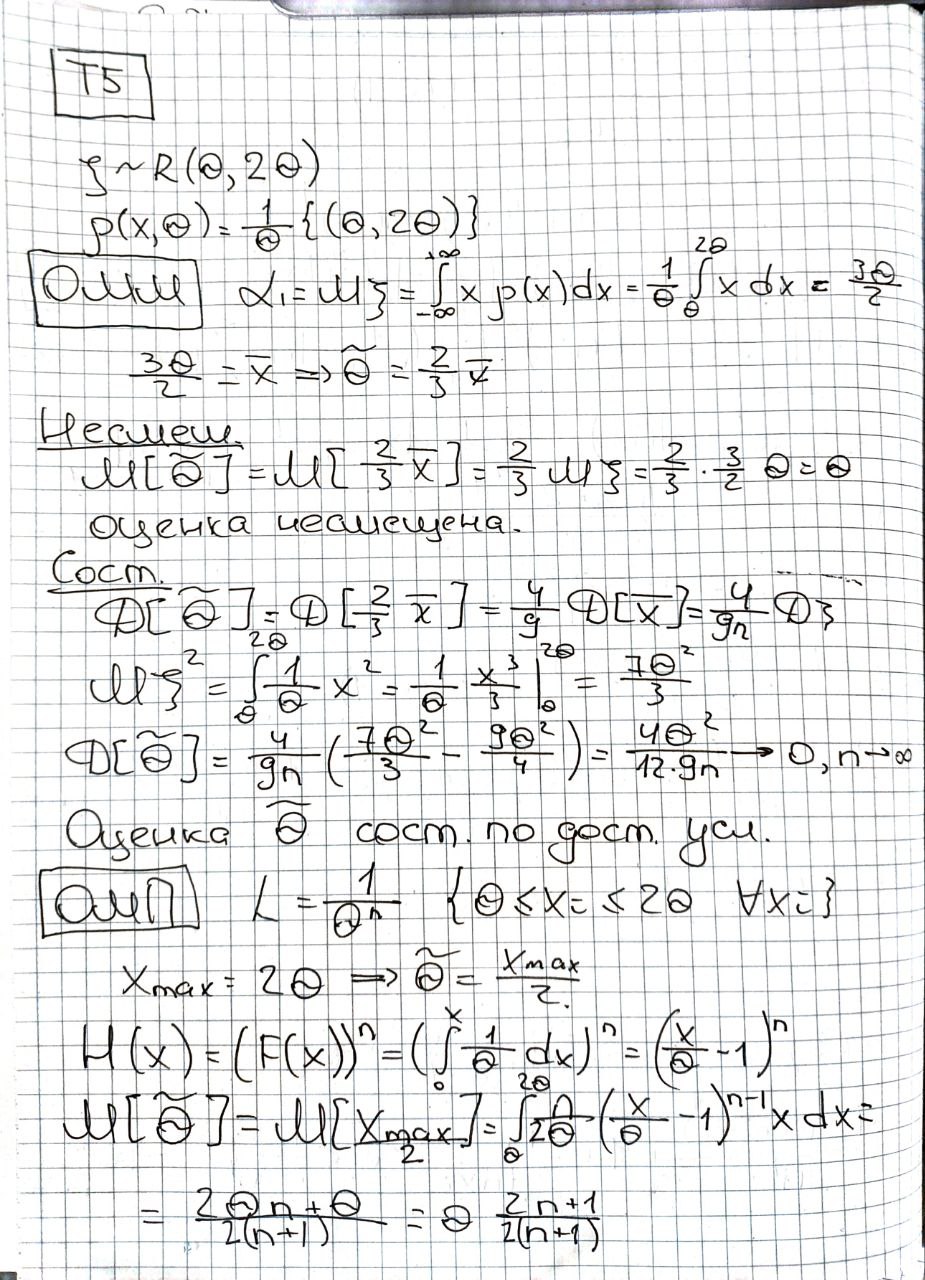 T5
ξ ~ R(Θ, 2Θ)
p(x,Θ) = 1/Θ {(Θ, 2Θ)}
ОММ α₁ = Mξ = ∫_{-∞}^{+∞} x p(x)dx = 1/Θ ∫_Θ^{2Θ} x dx = 3Θ/2
3Θ/2 = x̅ ⇒ Θ̃ = 2/3 x̅
Несмещ.
M[Θ̃] = M[2/3 x̅] = 2/3 Mξ = 2/3 · 3/2 Θ = Θ
оценка несмещена.
Сост.
D[Θ̃] = D[2/3 x̅] = 4/9 D[x̅] = 4/9n Dξ
Mξ² = ∫_Θ^{2Θ} 1/Θ x² = 1/Θ x³/3 |_Θ^{2Θ} = 7Θ²/3
D[Θ̃] = 4/9n (7Θ²/3 - 9Θ²/4) = 4Θ²/12·9n → 0, n→∞
Оценка Θ̃ сост. по дост. усл.
ОМП L = 1/Θⁿ {Θ ≤ x= ≤ 2Θ ∀x=}
Xmax = 2Θ ⇒ Θ̃ = Xmax/2.
H(x) = (F(x))ⁿ = (∫_Θ^x 1/Θ dx)ⁿ = (x/Θ - 1)ⁿ
M[Θ̃] = M[Xmax/2] = ∫_Θ^{2Θ} n/2Θ (x/Θ - 1)ⁿ⁻¹ x dx =
= 2Θn + Θ/2(n+1) = Θ 2n+1/2(n+1)